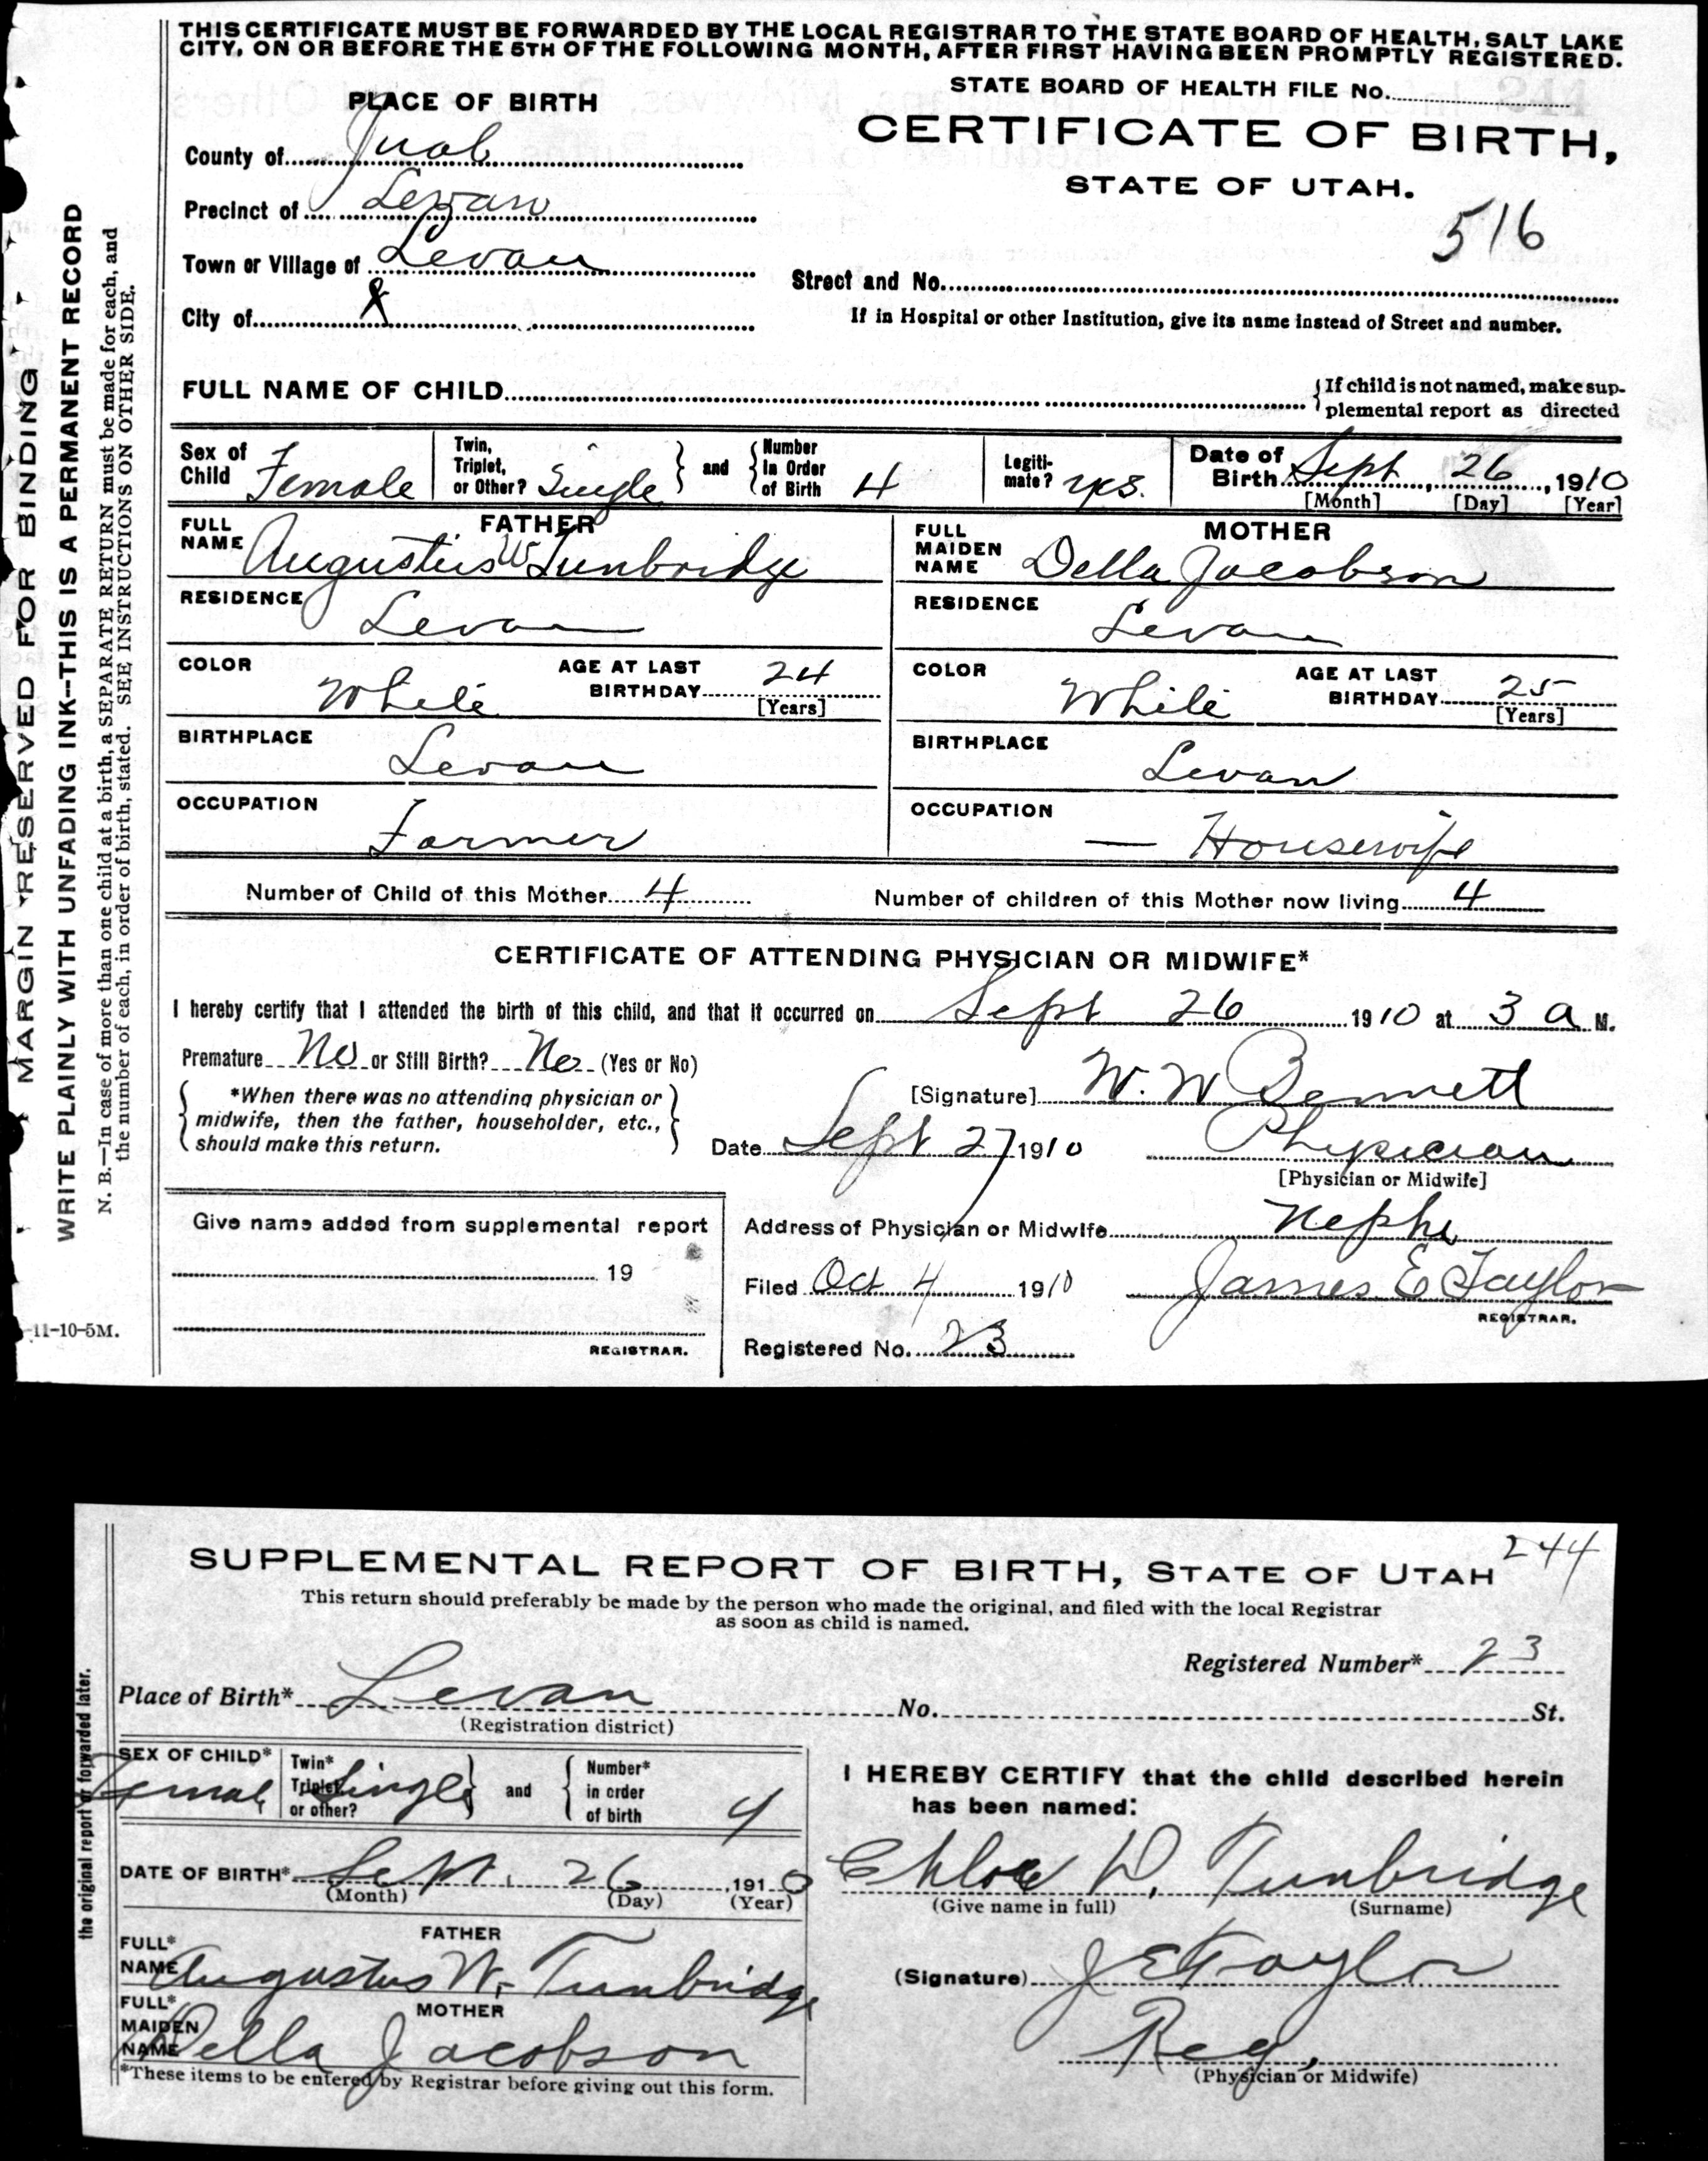 THIS CERTIFICATE MUST BE FORWARDED BY THE LOCAL REGISTRAR TO THE STATE BOARD OF HEALTH, SALT LAKE
CITY, ON OR BEFORE THE 5TH OF THE FOLLOWING MONTH, AFTER FIRST HAVING BEEN PROMPTLY REGISTERED.
MARGIN RESERVED FOR BINDING
WRITE PLAINLY WITH UNFADING INK--THIS IS A PERMANENT RECORD
N. B.—In case of more than one child at a birth, a SEPARATE RETURN must be made for each, and
the number of each, in order of birth, stated. SEE INSTRUCTIONS ON OTHER SIDE.
11-10-5M.
STATE BOARD OF HEALTH FILE No.
PLACE OF BIRTH
CERTIFICATE OF BIRTH,
STATE OF UTAH.
516
County of Juab
Precinct of Levan
Town or Village of Levan
Street and No.
City of X
If in Hospital or other Institution, give its name instead of Street and number.
FULL NAME OF CHILD
{If child is not named, make sup-
plemental report as directed
Sex of Child Female
Twin, Triplet, or Other? Single } and { Number in Order of Birth 4
Legiti-mate? yes.
Date of Birth Sept 26, 1910
[Month] [Day] [Year]
FATHER
FULL NAME Augustus W Tunbridge
MOTHER
FULL MAIDEN NAME Della Jacobson
RESIDENCE Levan
RESIDENCE Levan
COLOR White AGE AT LAST BIRTHDAY 24 [Years]
COLOR White AGE AT LAST BIRTHDAY 25 [Years]
BIRTHPLACE Levan
BIRTHPLACE Levan
OCCUPATION Farmer
OCCUPATION — Housewife
Number of Child of this Mother 4 Number of children of this Mother now living 4
CERTIFICATE OF ATTENDING PHYSICIAN OR MIDWIFE*
I hereby certify that I attended the birth of this child, and that it occurred on Sept 26 1910 at 3 a M.
Premature No or Still Birth? No (Yes or No)
{ *When there was no attending physician or
midwife, then the father, householder, etc.,
should make this return. }
[Signature] W. W Bennett
Date Sept 27 1910 Physician
[Physician or Midwife]
Give name added from supplemental report
19
REGISTRAR.
Address of Physician or Midwife Nephi
Filed Oct 4 1910 James E Taylor
REGISTRAR.
Registered No. 23
244
SUPPLEMENTAL REPORT OF BIRTH, STATE OF UTAH
This return should preferably be made by the person who made the original, and filed with the local Registrar
as soon as child is named.
the original report or forwarded later.
Registered Number* 23
Place of Birth* Levan No. St.
(Registration district)
SEX OF CHILD* Female
Twin* Triplet or other? Single } and { Number* in order of birth 4
DATE OF BIRTH* Sept. 26, 1910
(Month) (Day) (Year)
FATHER
FULL* NAME Augustus W. Tunbridge
MOTHER
FULL* MAIDEN NAME Della Jacobson
*These items to be entered by Registrar before giving out this form.
I HEREBY CERTIFY that the child described herein
has been named:
Chloe D. Tunbridge
(Give name in full) (Surname)
(Signature) J E Taylor
Reg.
(Physician or Midwife)